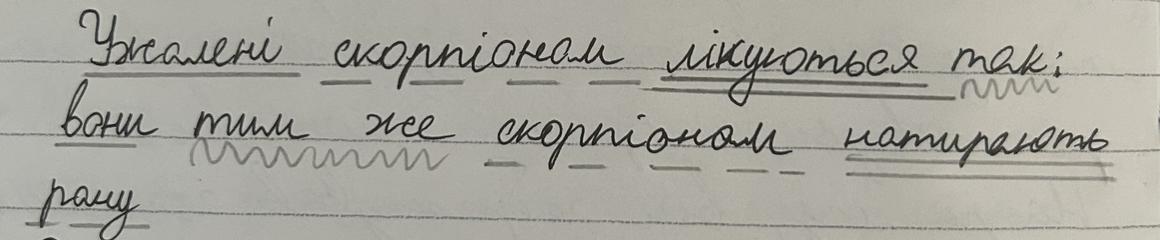 Ужалені скорпіоном лікуються так:
вони тим же скорпіоном натирають
рану